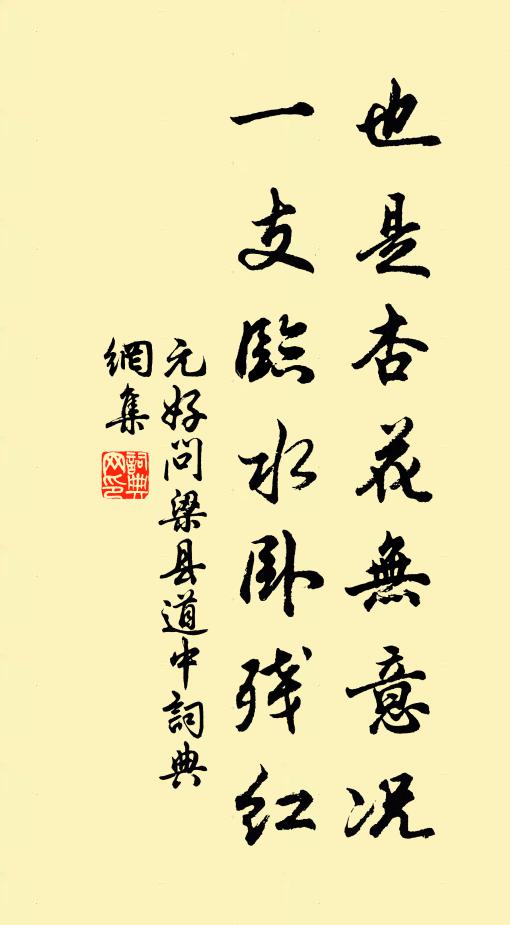 也是杏花無意况
一支臨水卧残红
元好问梁县道中詞典
網集
詞典
网印